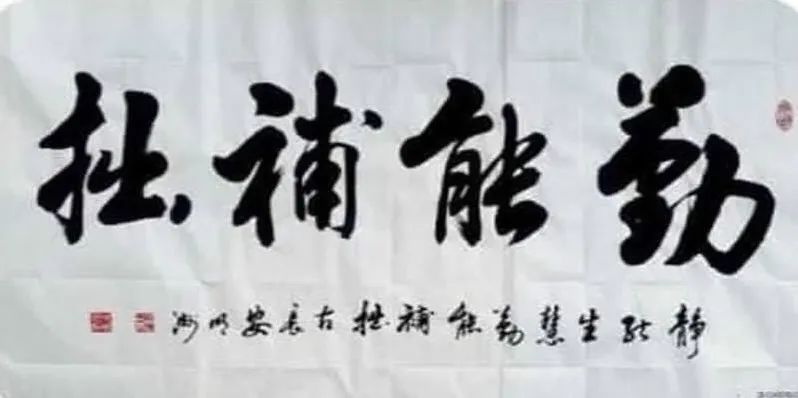 勤能補拙
靜能生慧勤能補拙古長安明海